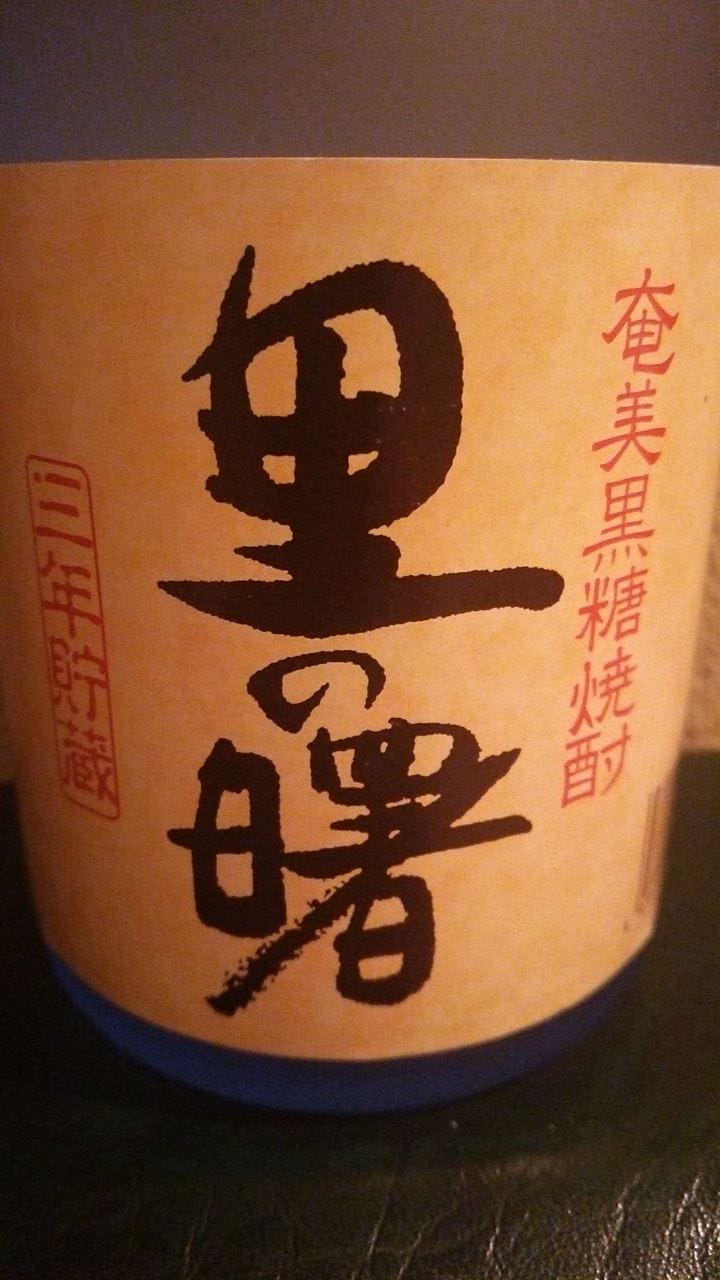 奄美黒糖焼酎
里の曙
三年貯蔵